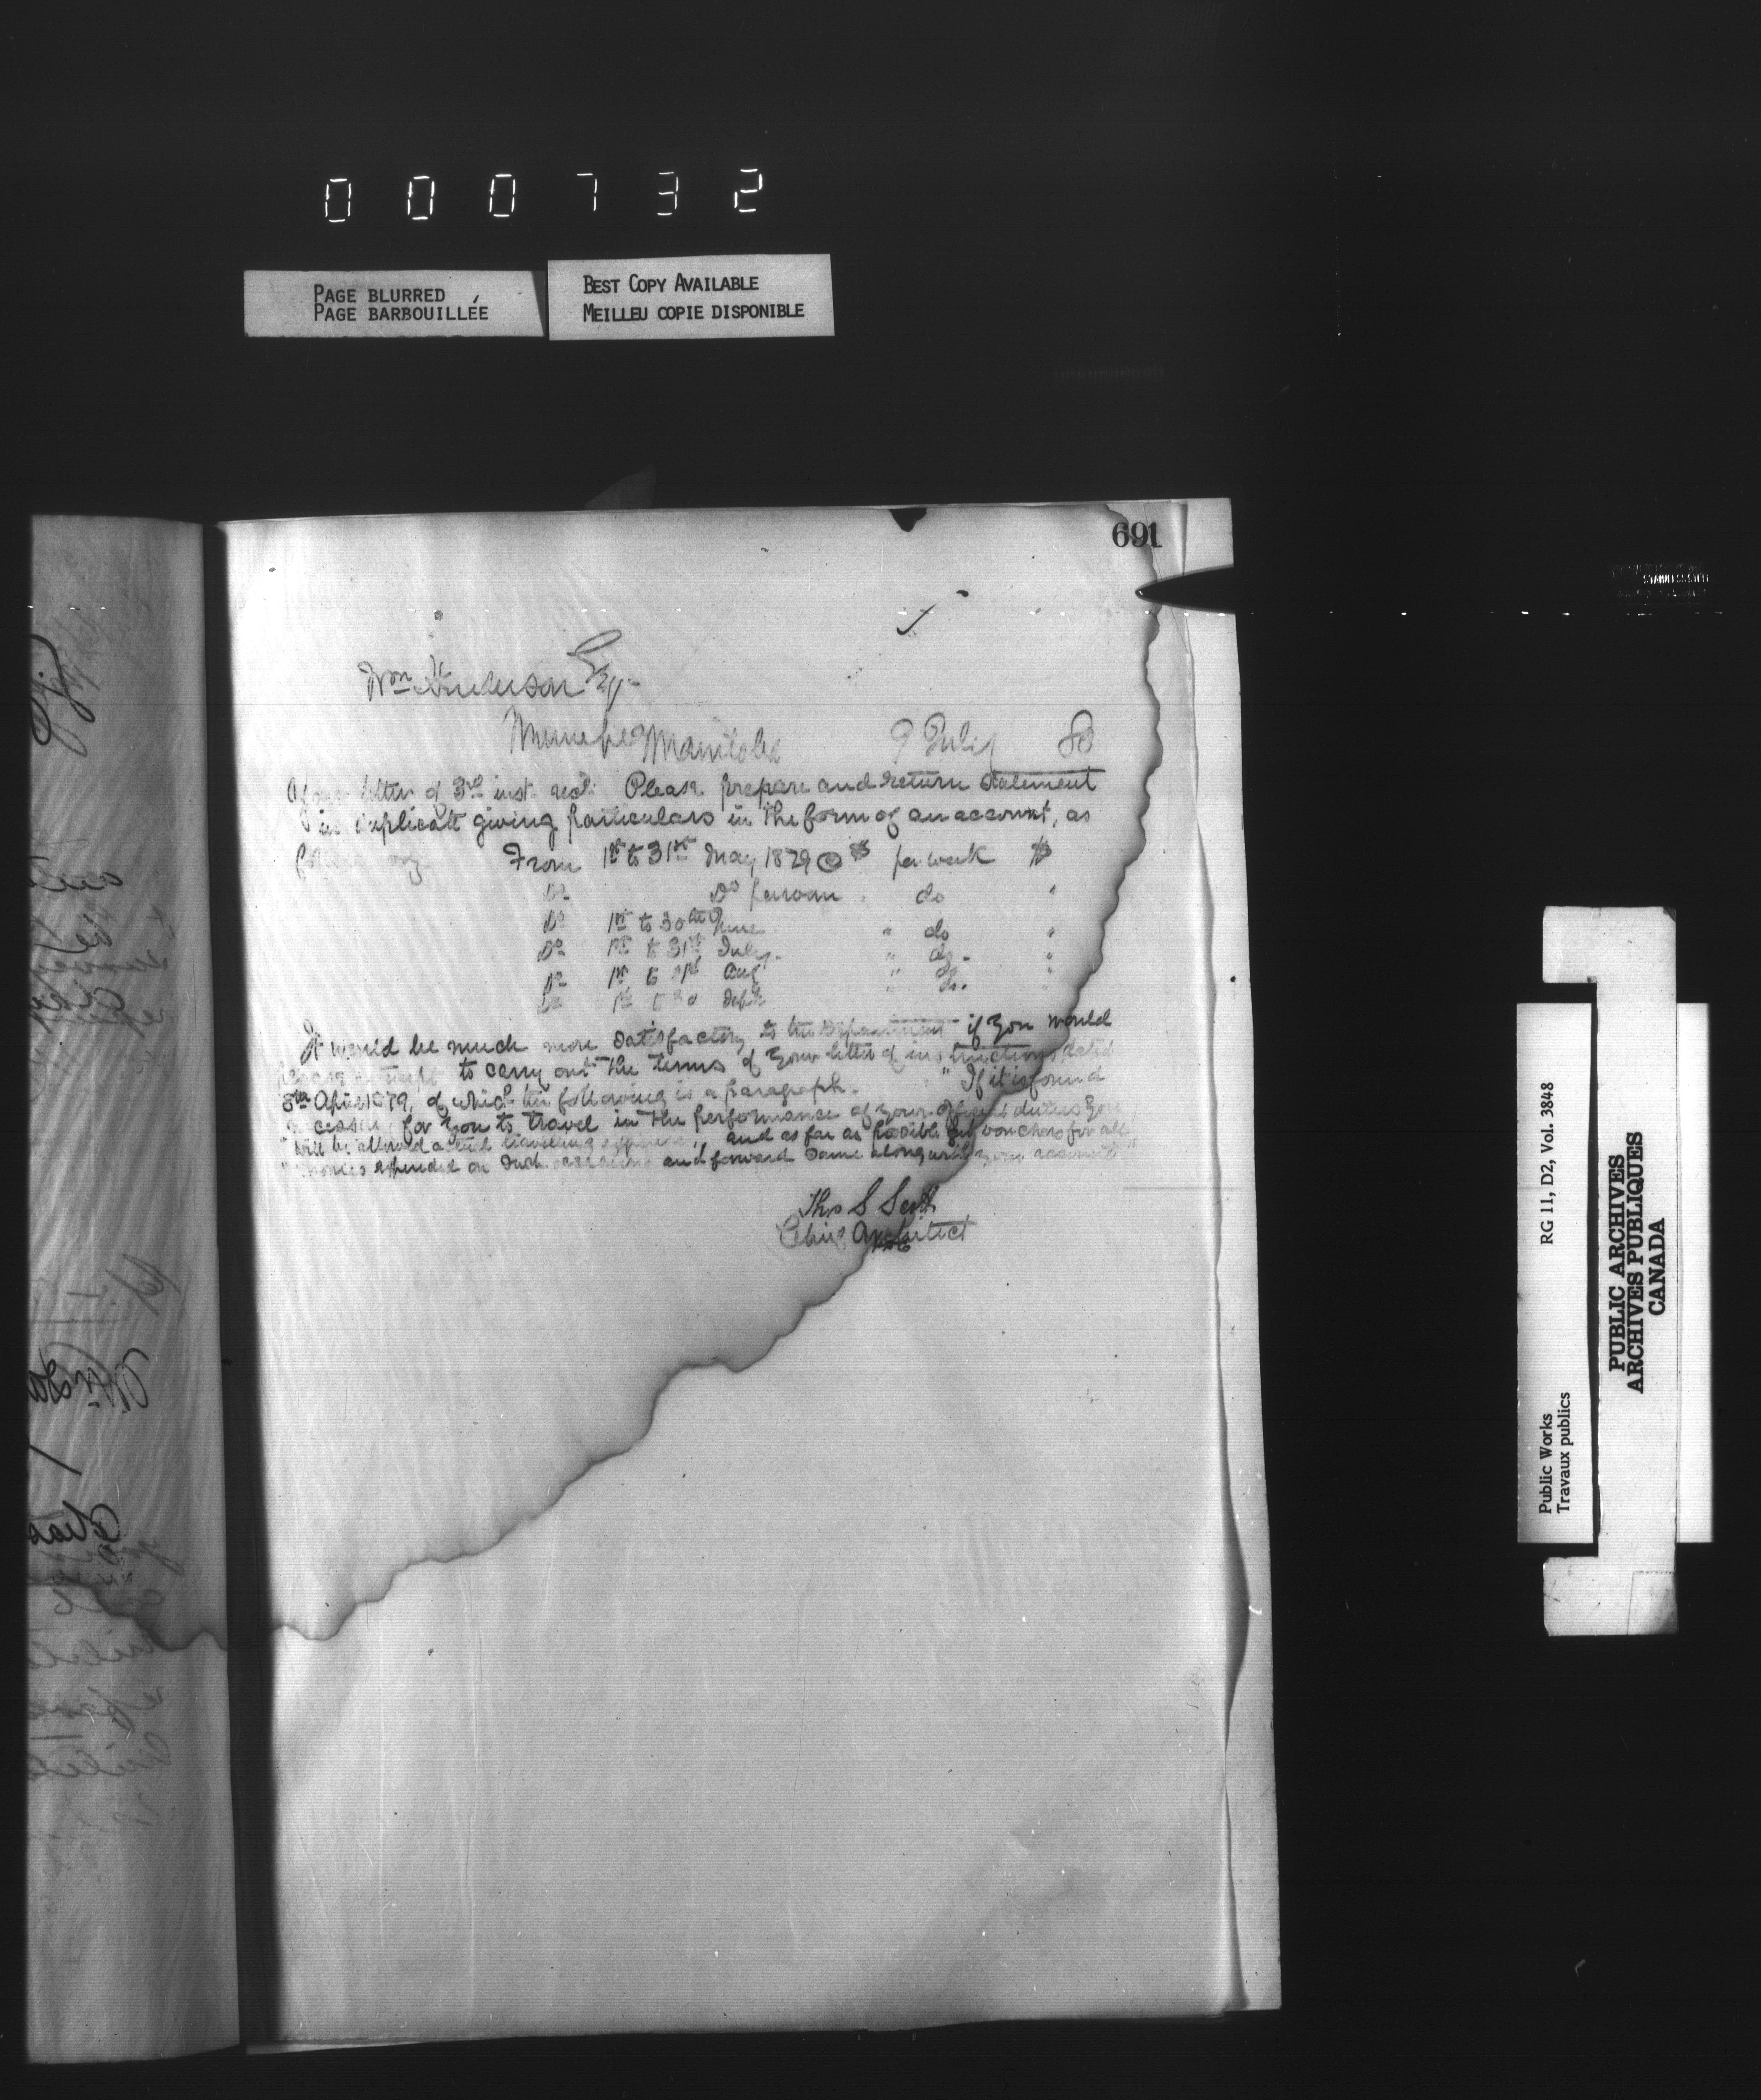 000732
PAGE BLURRED
PAGE BARBOUILLÉE
BEST COPY AVAILABLE
MEILLEU COPIE DISPONIBLE
691
Wm Henderson Esq
Manitoba 9 July 80
letter of 3rd inst. recd. Please prepare and return statement
in duplicate giving particulars in the form of an account, as
From 1st to 31st May 1879 @ $ per week $
Do Do do "
Do 1st to 30th June " do "
Do 1st to 31st July " do - "
Do 1st to 31st Aug " do. "
Do 1st to 30 Sept
It would be much more satisfactory to the Department if you would
please attempt to carry out the terms of your letter of instructions dated
8th April 1879, of which the following is a paragraph. "If it is found
necessary for you to travel in the performance of your official duties you
" will be allowed actual travelling expenses, and as far as possible get vouchers for all
" monies expended on such occasions and forward same along with your account"
Thos S Scott
Chief Architect
Public Works RG 11, D2, Vol. 3848
Travaux publics
PUBLIC ARCHIVES
ARCHIVES PUBLIQUES
CANADA